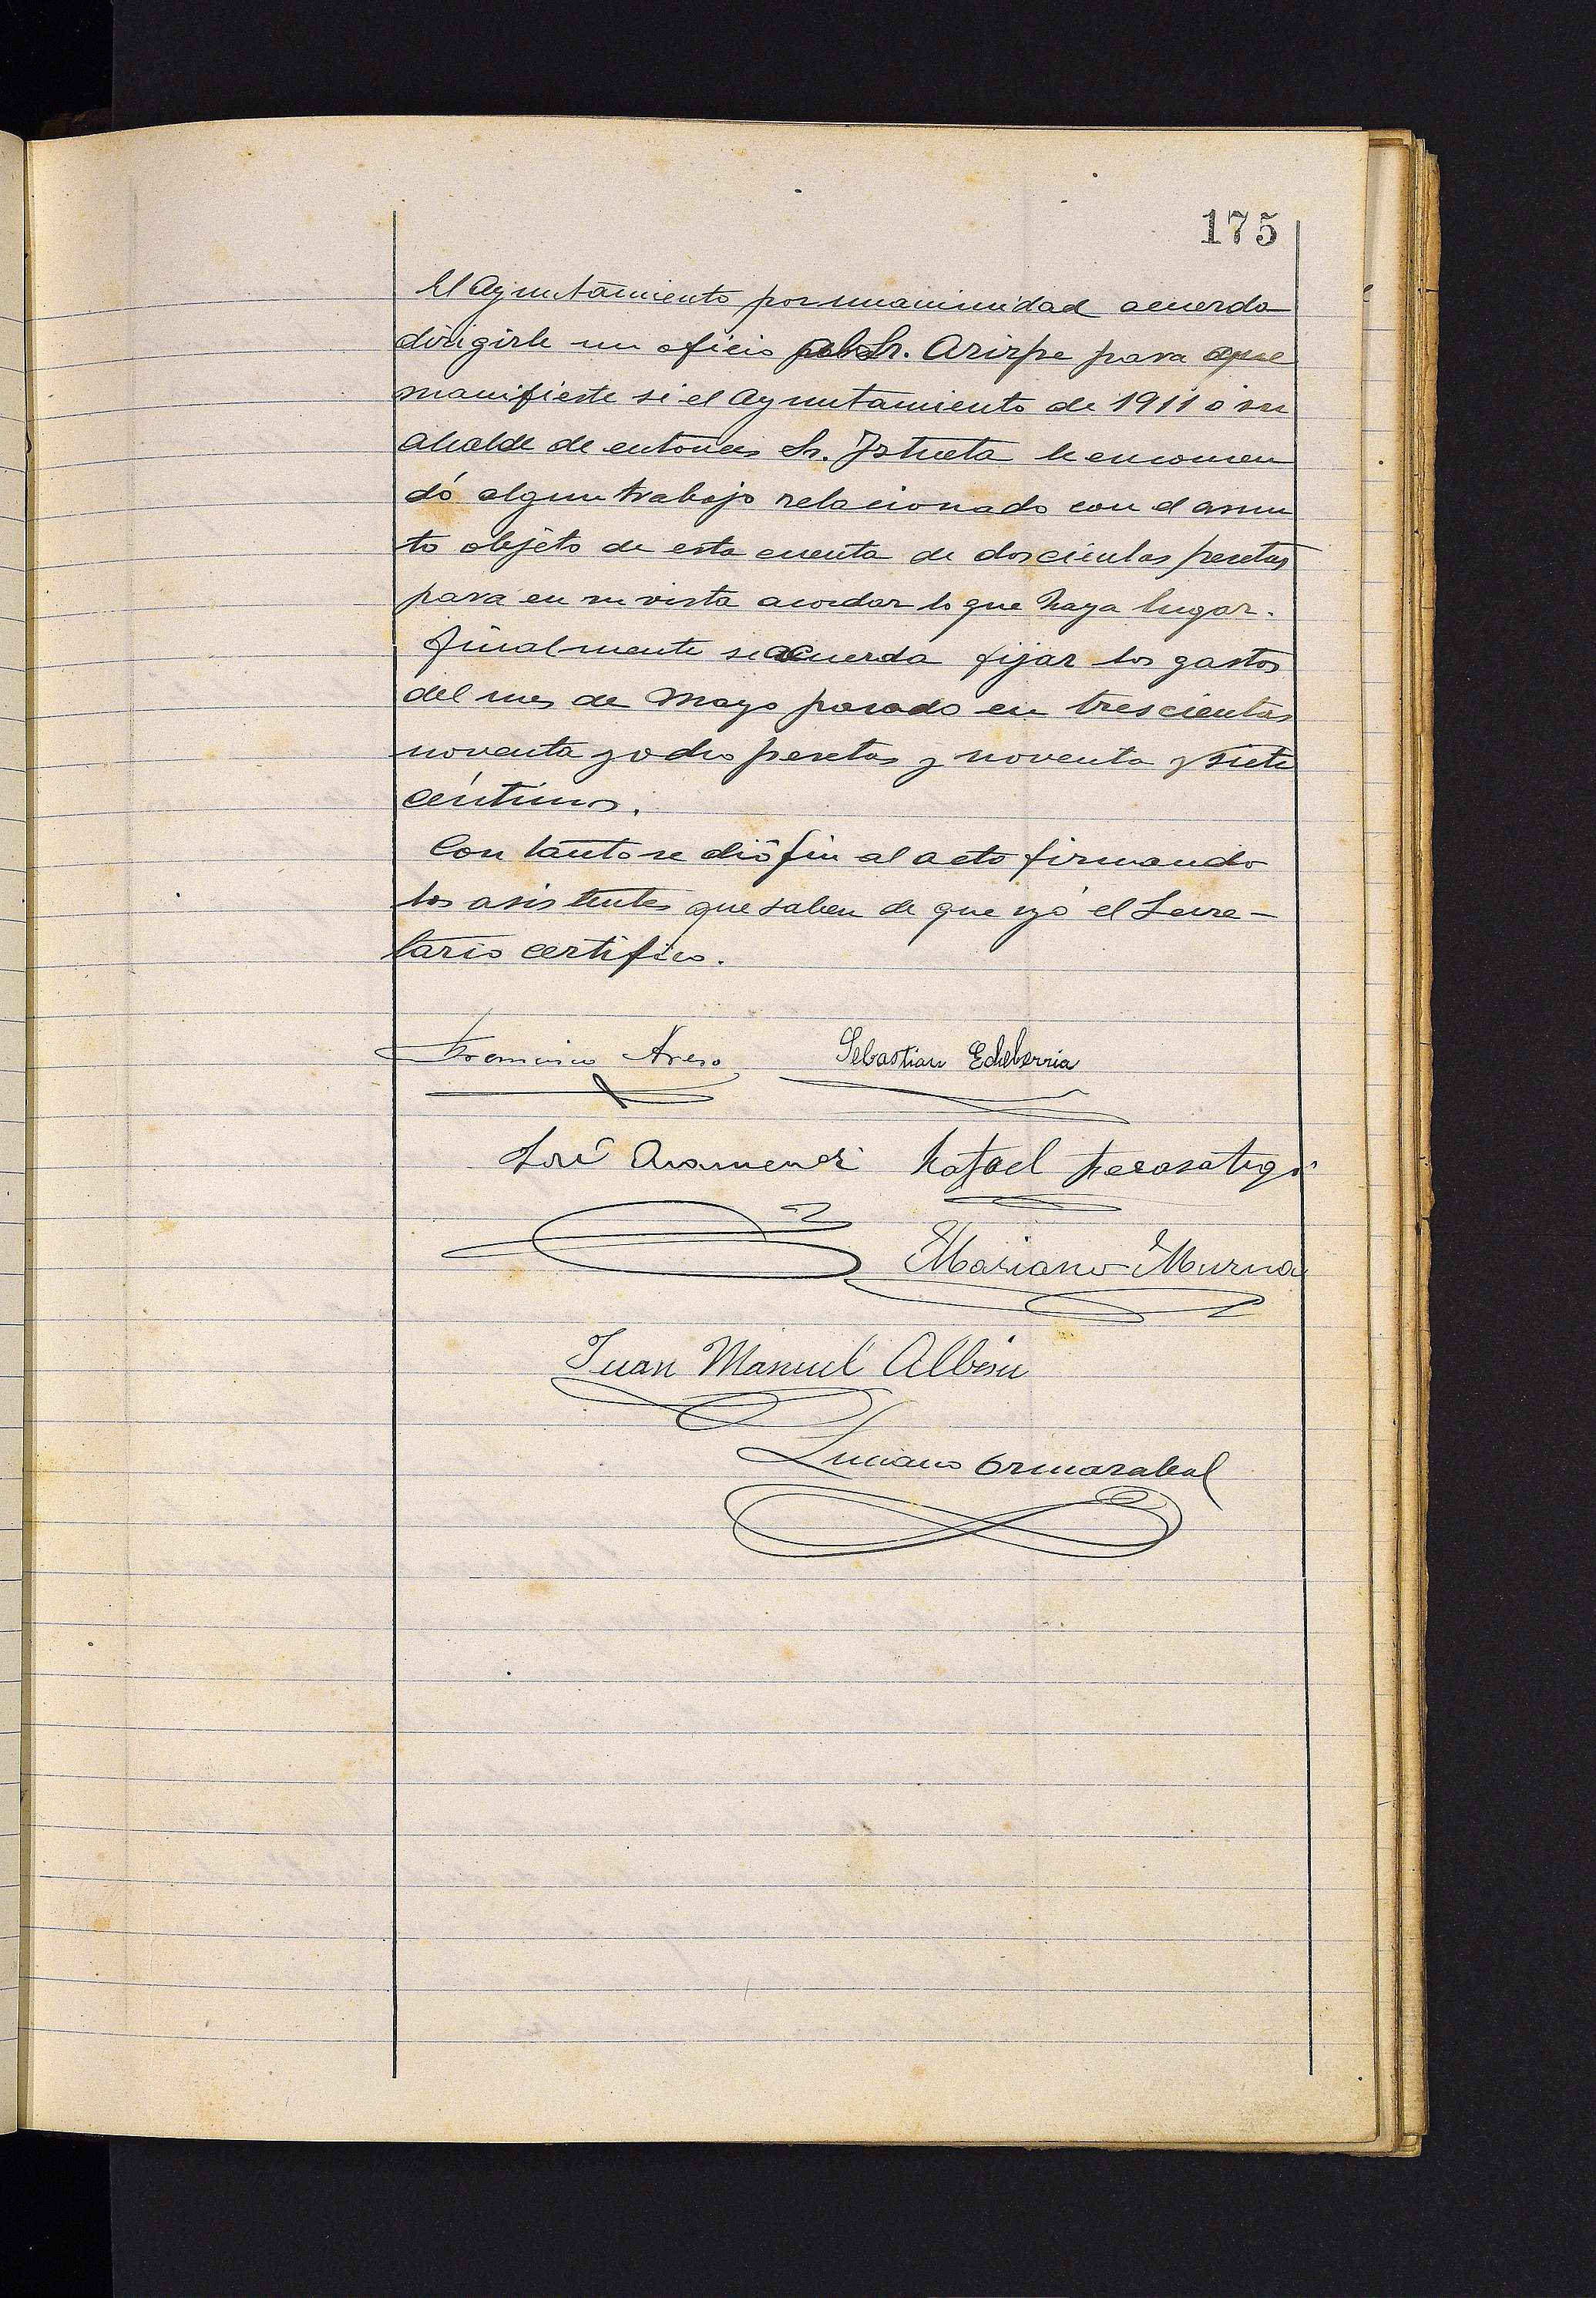 175
El Ayuntamiento por unanimidad acuerda
dirigirle un oficio al Sr. Arizpe para que
manifieste si el Ayuntamiento de 1911 ó su
alcalde de entonces Sr. Iztueta le encomen
dó algun trabajo relacionado con el asun
to objeto de esta cuenta de doscientas pesetas
para en su vista acordar lo que haya lugar.
Finalmente se acuerda fijar los gastos
del mes de Mayo pasado en trescientas
noventa y ocho pesetas y noventa y siete
céntimos.
Con tanto se dió fin al acto firmando
los asistentes que saben de que yó el Secre-
tario certifico.
Francisco Areso Sebastian Echeberria
José Aramendi Rafael
Mariano Murua
Juan Manuel Albisu
Luciano Ormazabal